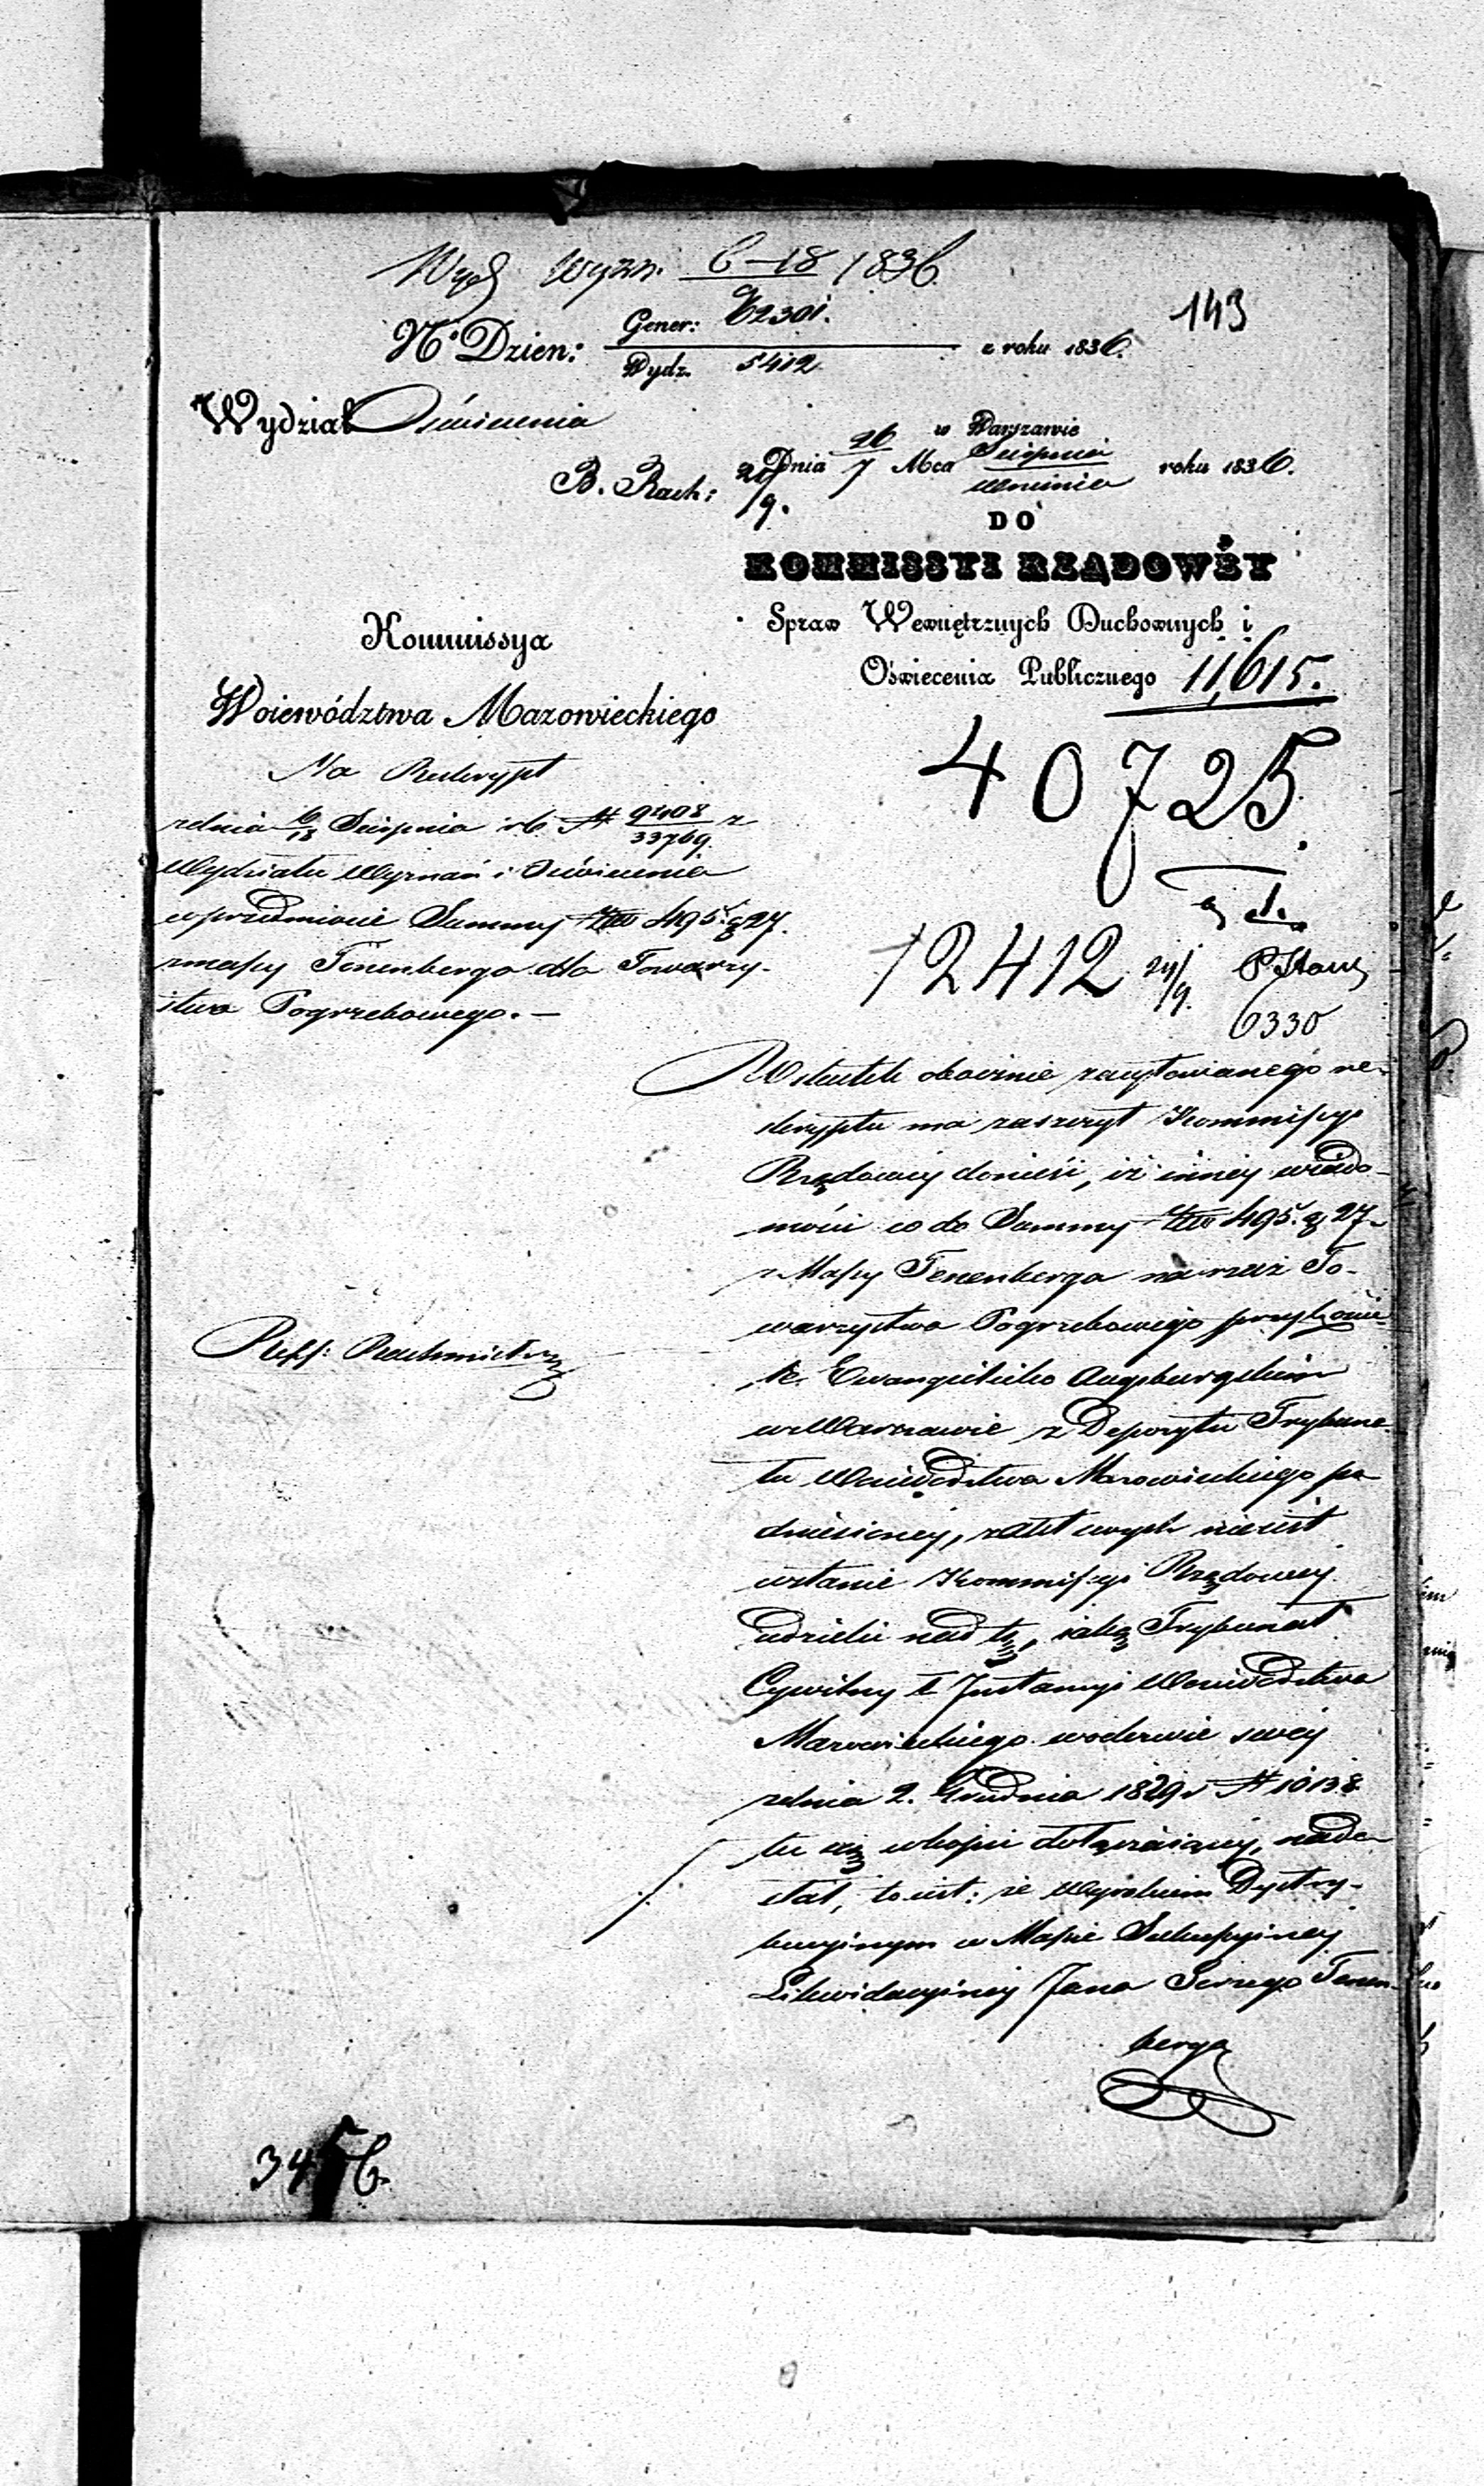 Wydz Wyzn. 6–18 1836
143
No Dzien: Gener: 62301.
Wydz. 5412
z roku 1836.
Wydział Oświecenia
w Warszawie
Dnia 26/7 Mca Sierpnia/Września roku 1836.
B. Rach: 29/9.
DO
KOMMISSYI RZĄDOWÉY
Spraw Wewnętrznych Duchownych i
Oświecenia Publicznego 11,615.
Kommissya
Woiewództwa Mazowieckiego
40725.
Na Reskrypt
zdnia 6/18 Sierpnia rb. N 9408/33769 z
Wydziału Wyznań i Oświecenia
w przedmiocie Summy Złp 495 g 27.
zmassy Tenenberga dla Towarzy-
stwa Pogrzebowego. —
12412 29/9.
6330
Wskutek obocznie zacytowanego re-
skryptu ma zaszczyt Kommissya
Rządowey donieść, iż inney wiado-
mości co do Summy Złp 495. g 27
z Massy Tenenberga na rzecz To-
warzystwa Pogrzebowego przy Kościo-
le Ewangelicko Augsburgskim
w Warszawie z Depozytu Trybuna-
łu Woiewództwa Mazowieckiego po-
dniesioney, zakt swych nieiest
wstanie Kommissyi Rządowey
udzielić nad tę, iaką Trybunał
Cywilny I Instancyi Woiewództwa
Mazowieckiego wodezwie swey
zdnia 2. Grudnia 1829 r N 10138
tu się wkopii dołączaiącey, nade-
słał, to iest: że Wyrokiem Dystry-
bucyinym w Massie Sukcessyiney
Likwidacyiney Jana Jerzego Tenen-
berga
Reff: Rachmistrz
345 6.